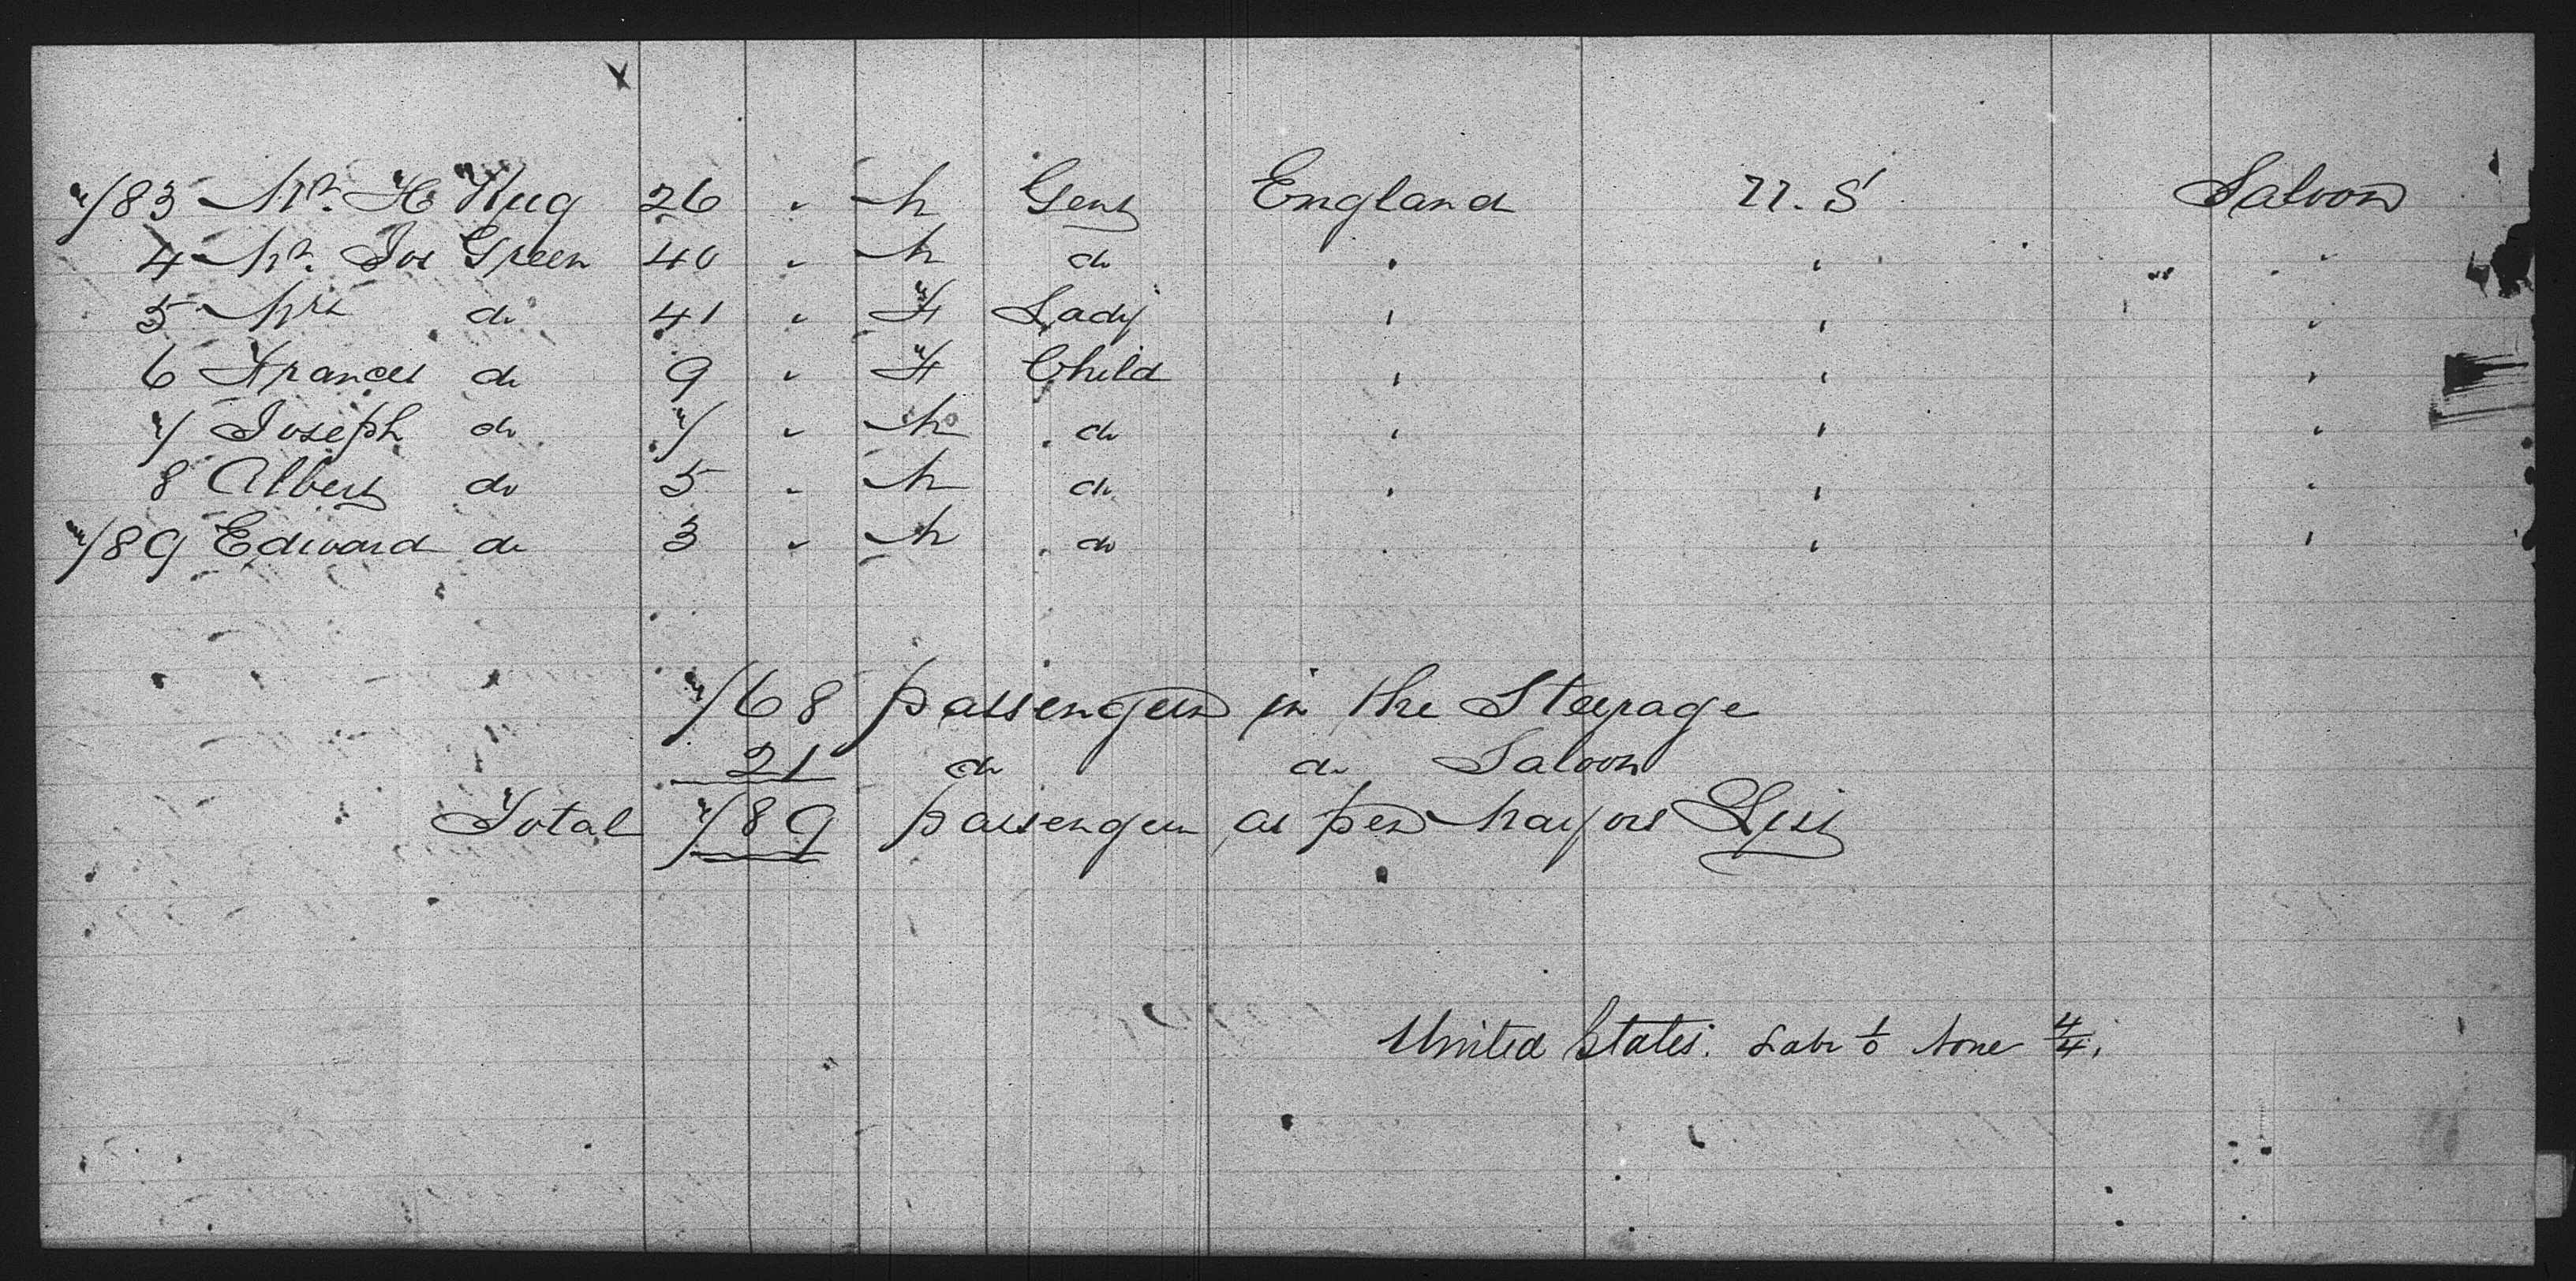 783 Mr. H Hug 26 " M Gent England U.S Saloon
4 Mr. Jos Green 40 " M do " " "
5 Mrs do 41 " F Lady " " "
6 Frances do 9 " F Child " " "
7 Joseph do 7 " M do " " "
8 Albert do 5 " M do " " "
789 Edward do 3 " M do " " "
768 passengers in the Steerage
21 do do Saloon
Total 789 passengers as per Mayors List
United States.